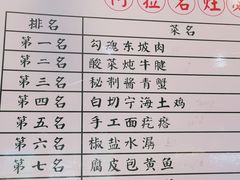 阿拉名灶
排名 菜名
第一名 勾魂东坡肉
第二名 酸菜炖牛腱
第三名 秘制酱青蟹
第四名 白切宁海土鸡
第五名 手工面疙瘩
第六名 椒盐水潺
第七名 腐皮包黄鱼